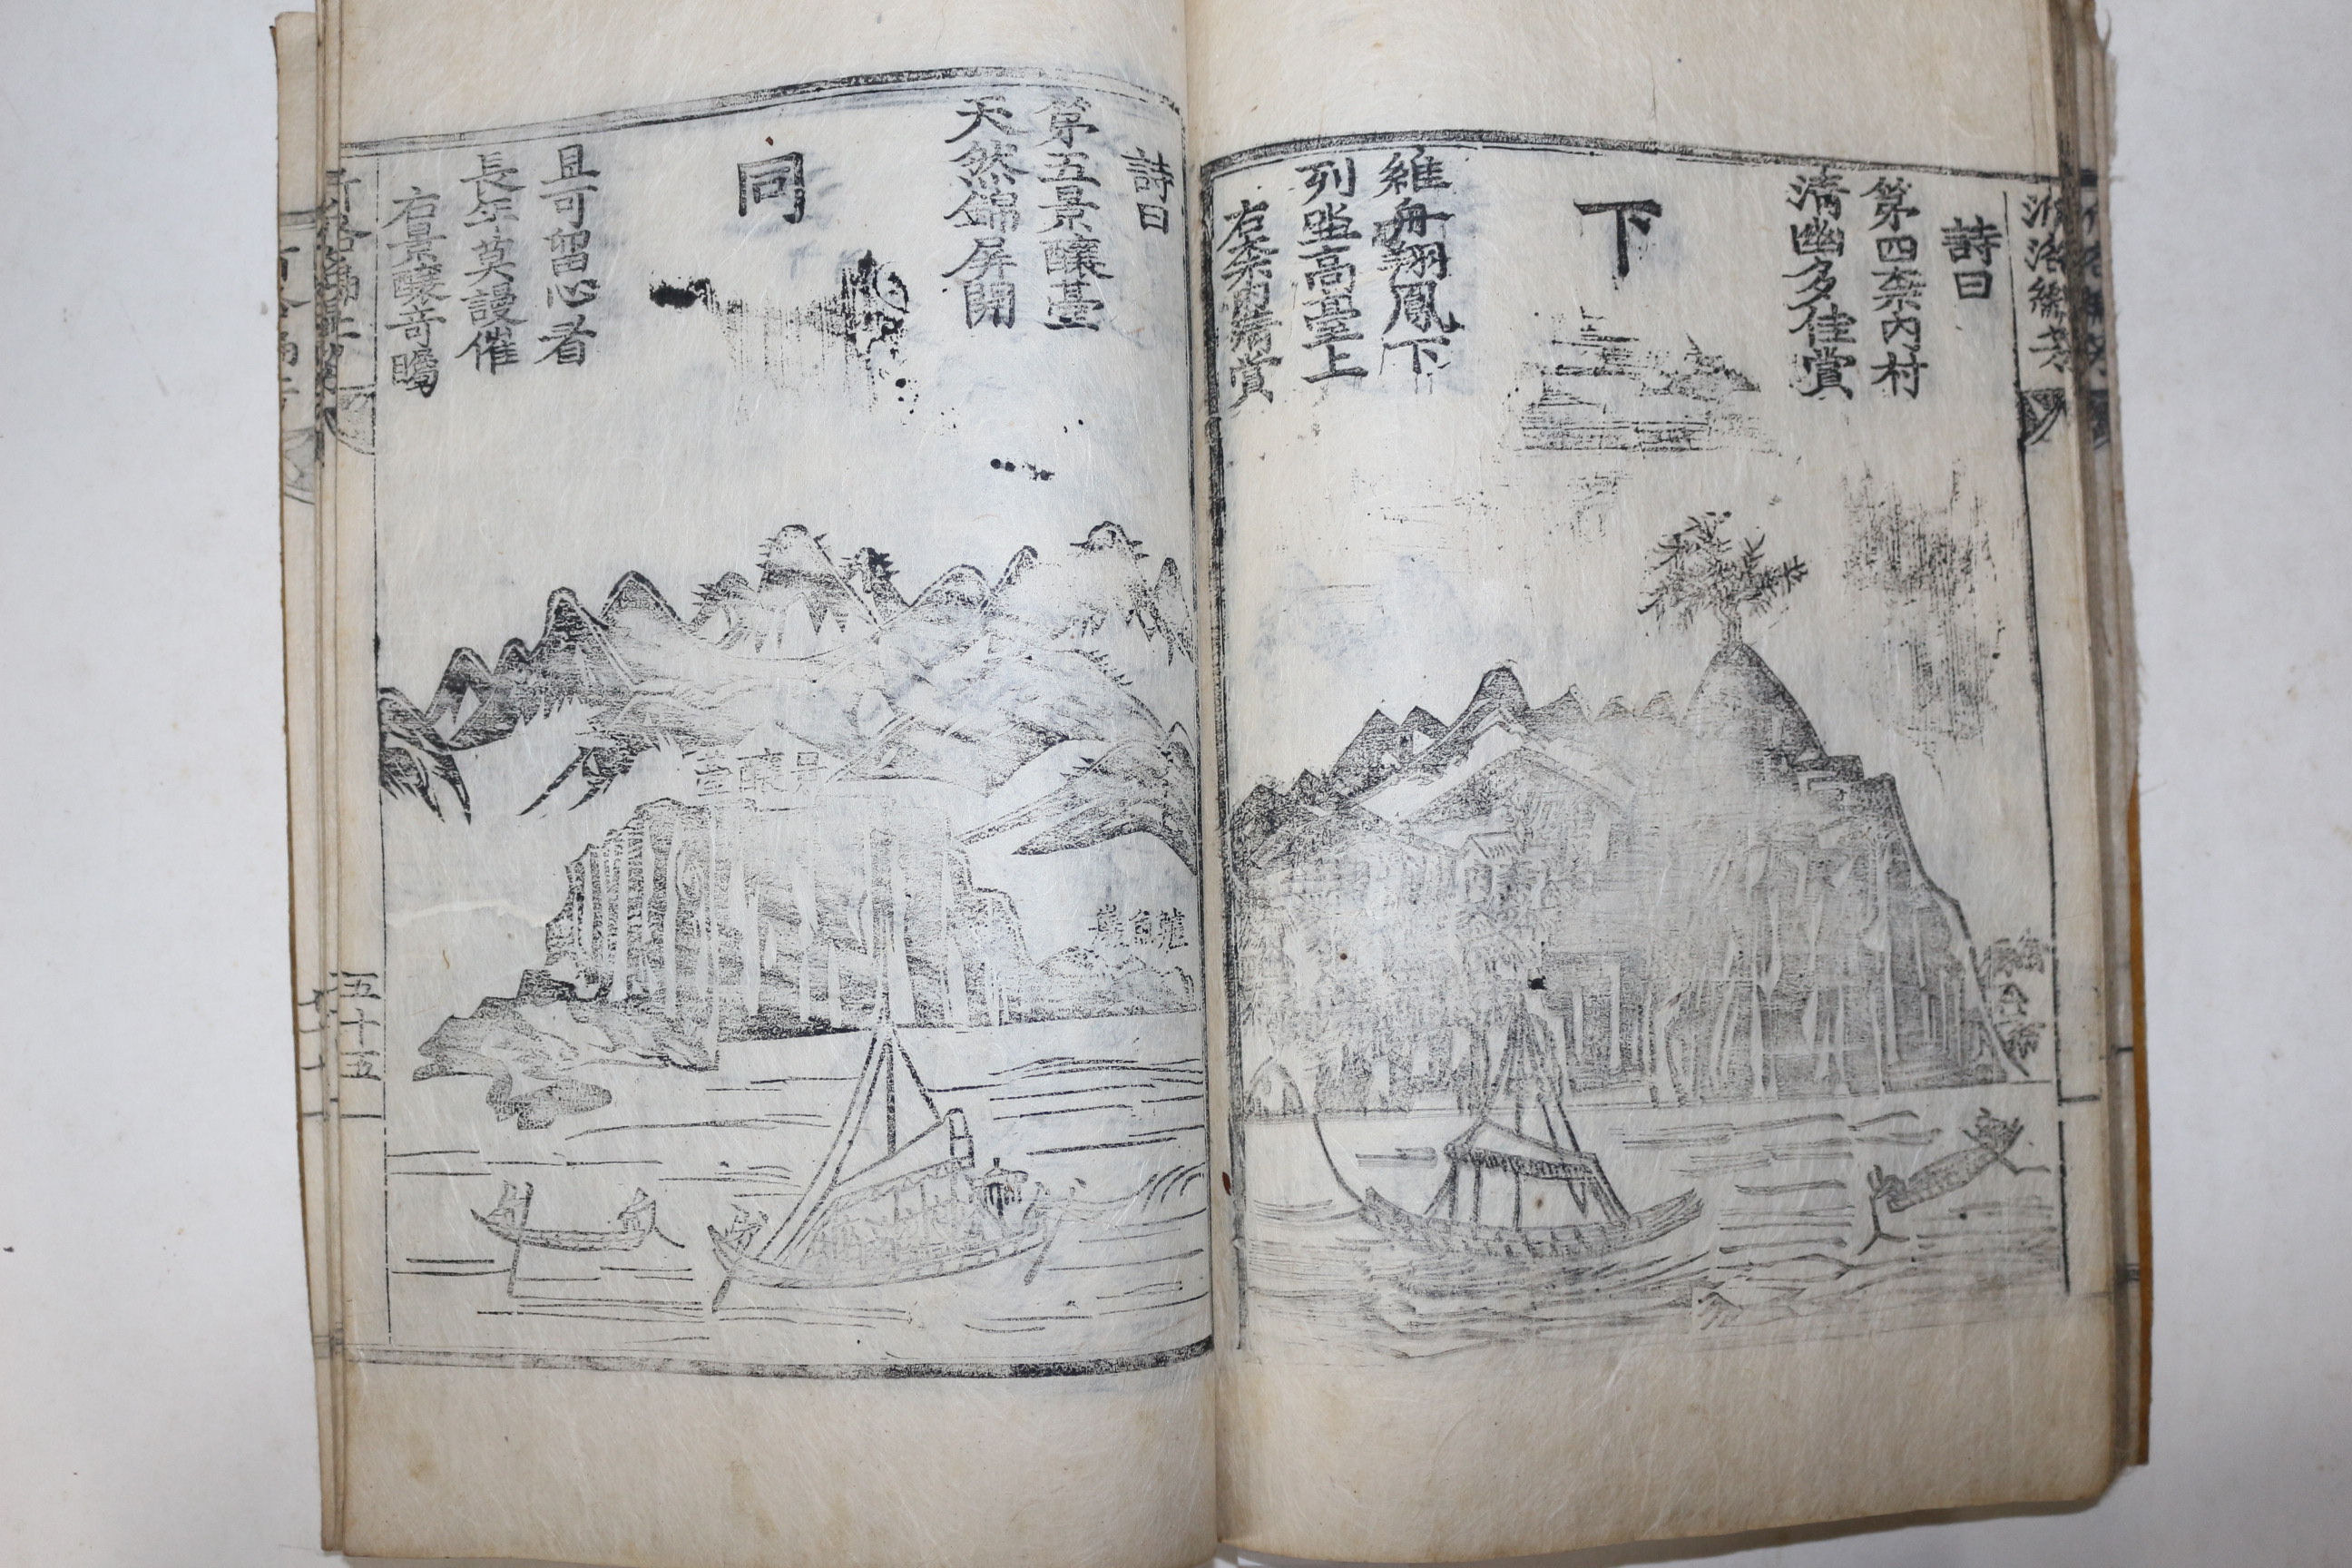 詩曰
第四柰內村
清幽多佳賞
下
維舟翔鳳下
列坐高臺上
右柰內清賞
詩曰
第五景釀臺
天然錦屏開
同
且可留心看
長年莫謾催
右景釀奇矚
景釀臺
五十五